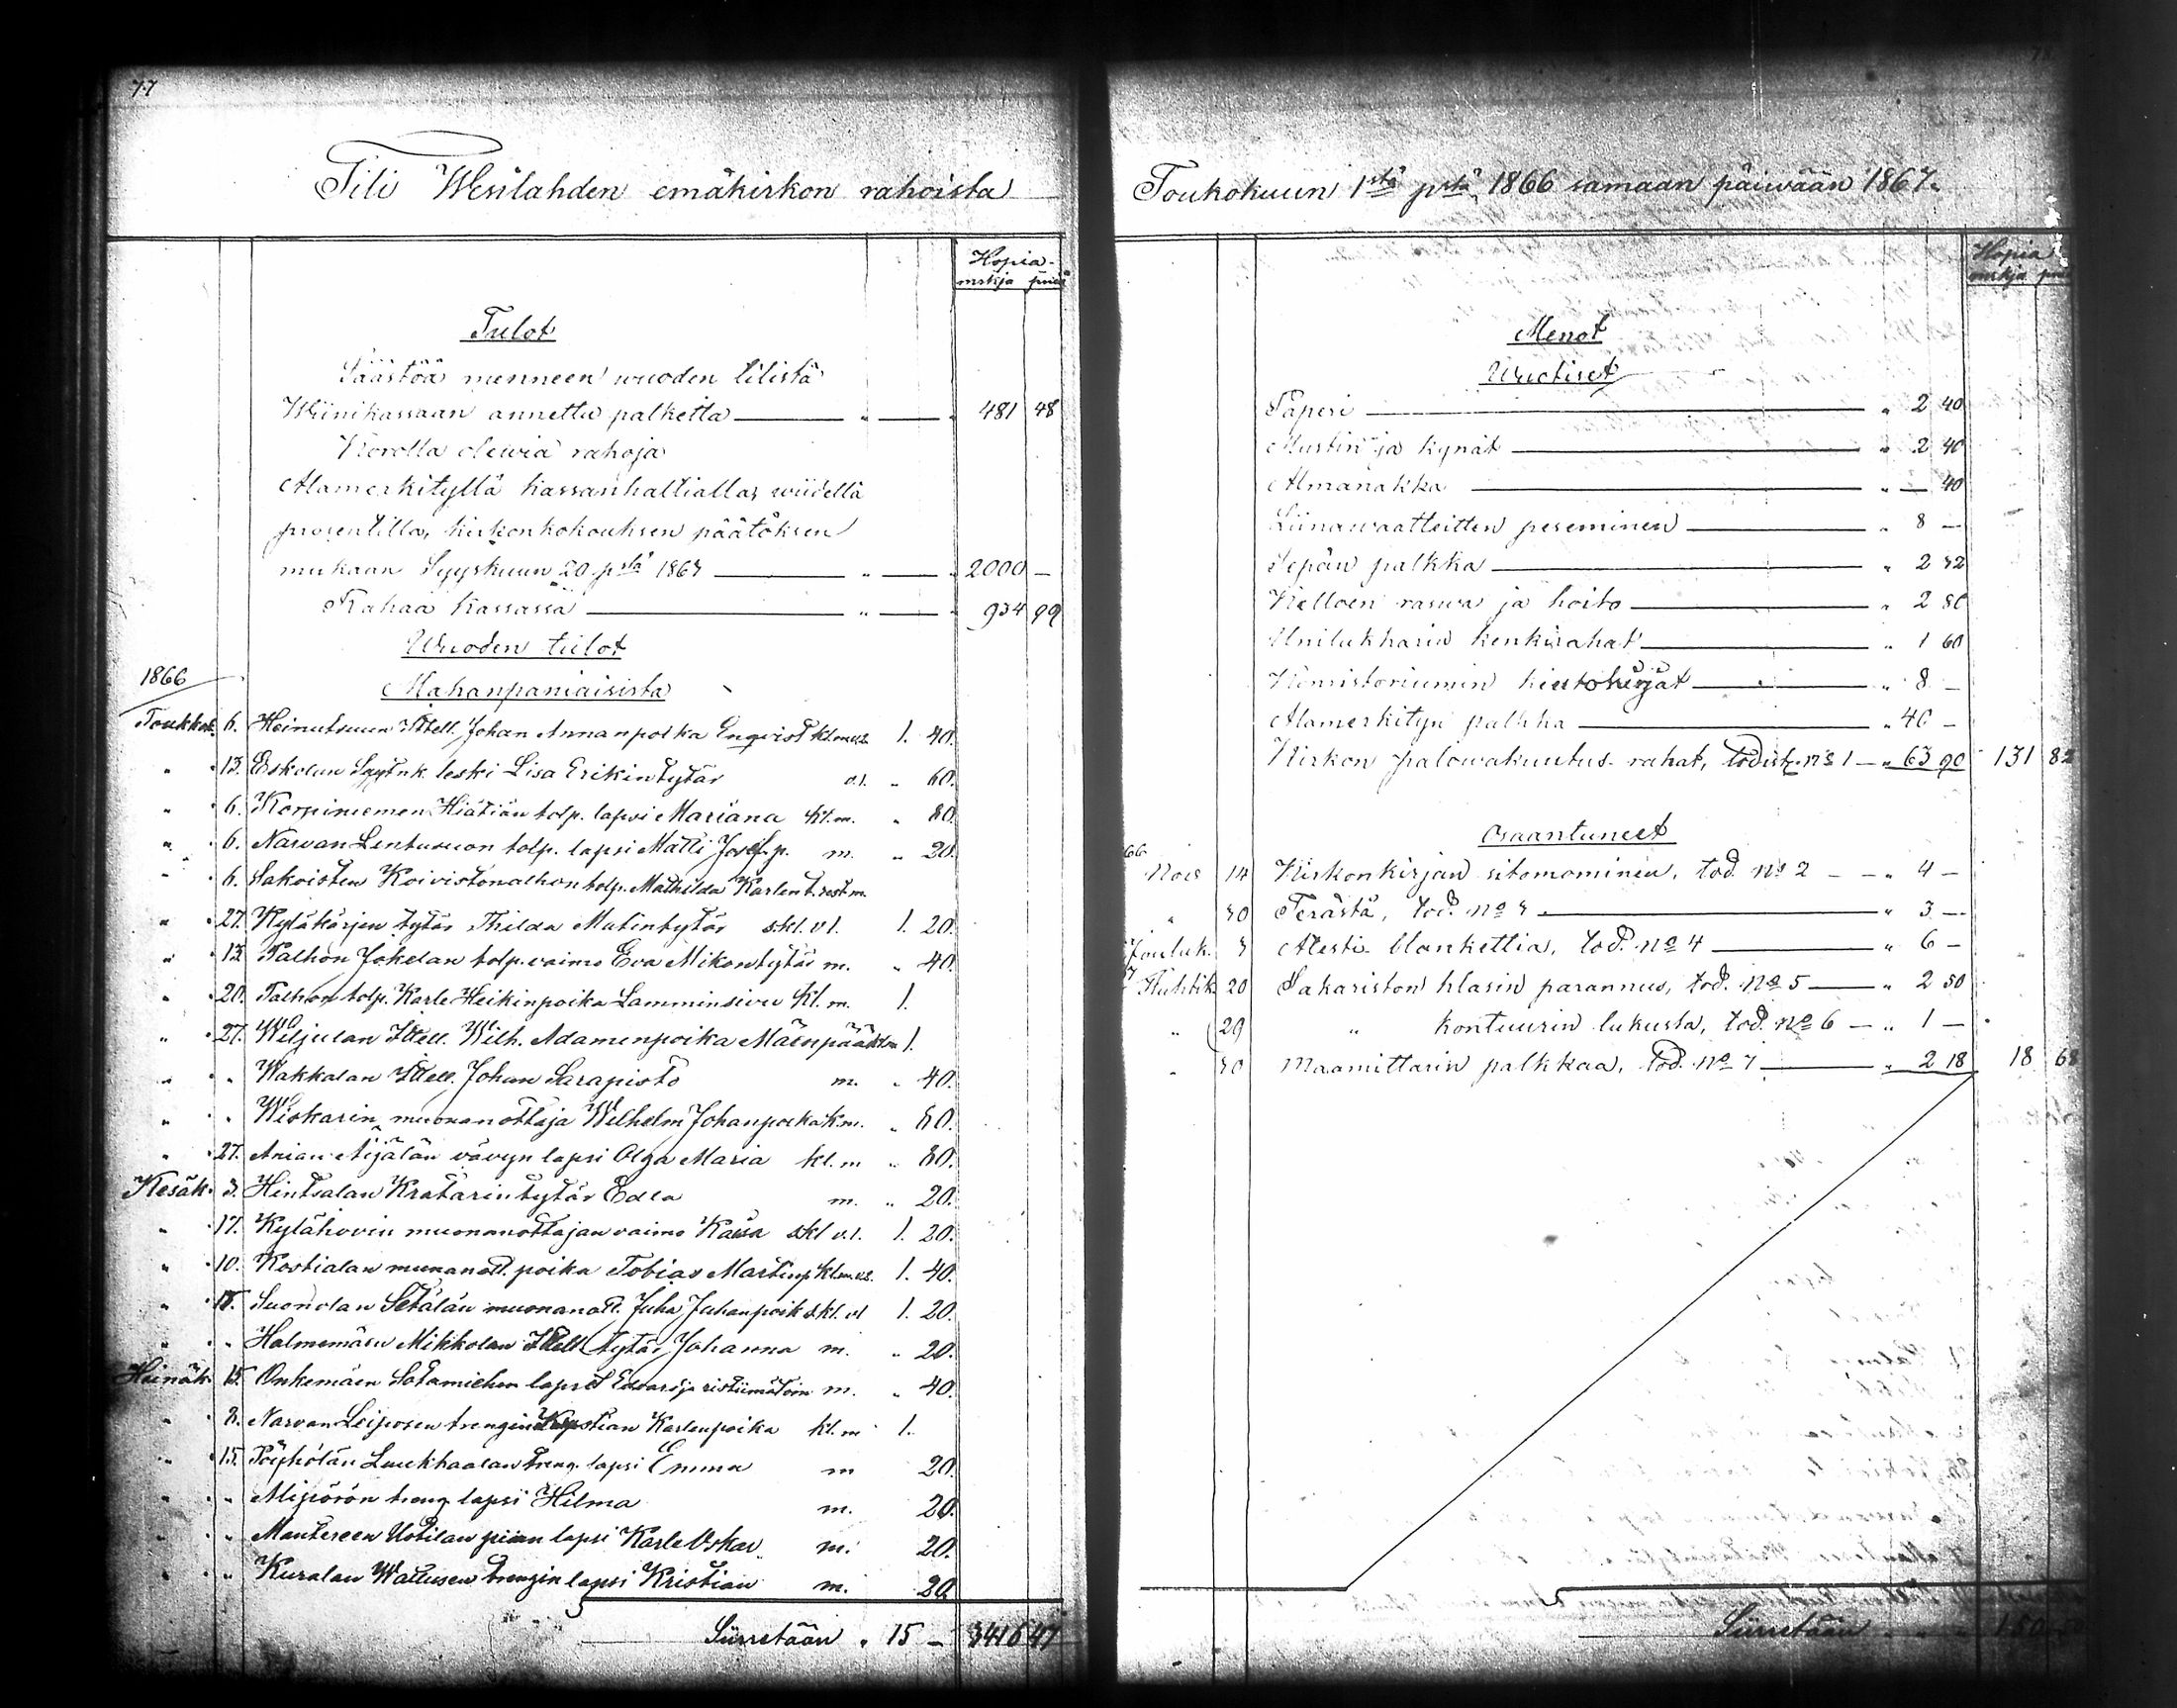 77
Tili Wesilahden emäkirkon rahoista
Hopia-
mrkja pniä
Tulot
Säästöä menneen wuoden tilistä
Wiinikassaan annettu palketta — " — " 481 48
Korolla olewia rahoja
Alamerkityllä kassanhaltialla, wiidellä
prosentilla, kirkonkokouksen päätöksen
mukaan Syyskuun 20 pstä 1863 — " — " 2000 —
Rahaa kassassa — " — " 934 99
Wuoden tulot
1866
Mahanpaniaisista
Toukok. 6. Heinutsuun Itsell. Johan Annanpoika Enqvist kl.m.v.l. 1. 40.
" 13. Eskolan leski Lisa Erikintytär v.l. " 60.
" 6. Korpiniemen Hiätiän torp. lapsi Mariana kl.m. " 80.
" 6. Narvan Lentusuon torp. lapsi Matti Josef.p. m. " 20.
" 6. Sakoisten Koivistonalhon torp. Mathilda Karlent. m.
" 27. Kyläkärjen tytär Thilda Matintytär s.kl.v.l. 1. 20.
" 13. Palhon Jokelan torp. vaimo Eva Mikontytär m. " 40.
" 20. Palhon torp. Karle Heikinpoika Lamminsivu kl.m. 1.
" 27. Wiljulan Itsell. Wilh. Adaminpoika Mäenpää kl.m 1.
" " Wakkalan Itsell. Johan Sarapisto m. " 40.
" " Wiskarin muonanottaja Wilhelm Johanpoika k.m. " 80.
" 27. Anian Äijälän vävyn lapsi Olga Maria kl.m " 80.
Kesäk. 3. Hintsalan Kratarin tytär Edla m. " 20.
" 17. Kylähovin muonanottajan vaimo Kaisa s.kl v.l. 1. 20.
" 10. Kostialan muonanott. poika Tobias Martinp kl.m.v.l. 1. 40.
" 17. Suonolan Setälän muonanott. Juha Juhanpoik s.kl.vl 1. 20.
" " Halmemäen Mikkolan Itsell. tytär Johanna m. " 20.
Heinäk 15. Onkemäen Sotamiehen lapset Edvard ja ristiimätöin m. " 40.
" 8. Narvan Leiposen trengin Kristian Karlenpoika kl.m 1.
" 15. Pöyhölän Luukkaalan treng. lapsi Emma m 20.
" " treng lapsi Hilma m. 20.
" " Mantereen Uotilan piian lapsi Karle Oskar m. 20.
" " Kuralan Wattusen trengin lapsi Kristian m. 20
Siirretään " 15 — 3416 47
Toukokuun 1stä pstä 1866 samaan päiwään 1867.
Hopia
mrkja pniä
Menot
Wuotiset
Paperi — " 2 40
Mustin ja kynät — " 2 40
Almanakka — " — 40
Liinawaatteitten peseminen — " 8 —
Sepän palkka — " 2 32
Kelloen raswa ja hoito — " 2 80
Unilukkarin kenkirahat — " 1 60
Konsistoriumin kiertokirjät — " 8 —
Alamerkityn palkka — " 40 —
Kirkon palowakuutus-rahat, todistk. No 1 — " 63 90 131 82
Osaantuneet
66
Nov 14 Kirkonkirjan sitomominen, tod. No 2 — " 4 —
" 30 Terästä, tod. No 3 — " 3 —
Jouluk. 3 Atesti blankettia, tod. No 4 — " 6 —
7 Huhtik 20 Sakariston klasin parannus, tod. No 5 — " 2 50
" 29 " kontuurin lukusta, tod. No 6 — " 1 —
" 30 Maamittarin palkkaa, tod. No 7 — " 2 18 18 68
Siirretään " " 150